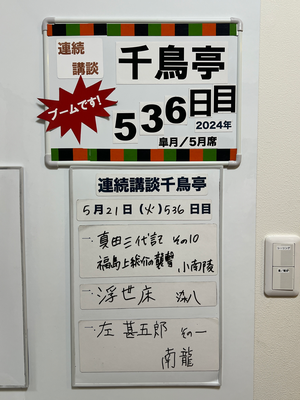 連続
講談
千鳥亭
ブームです!
536日目
2024年
皐月/5月席
連続講談千鳥亭
5月21日(火)536日目
一、真田三代記 その10
福島上総介の襲撃 小南陵
一、浮世床
一、左甚五郎 その一
南龍